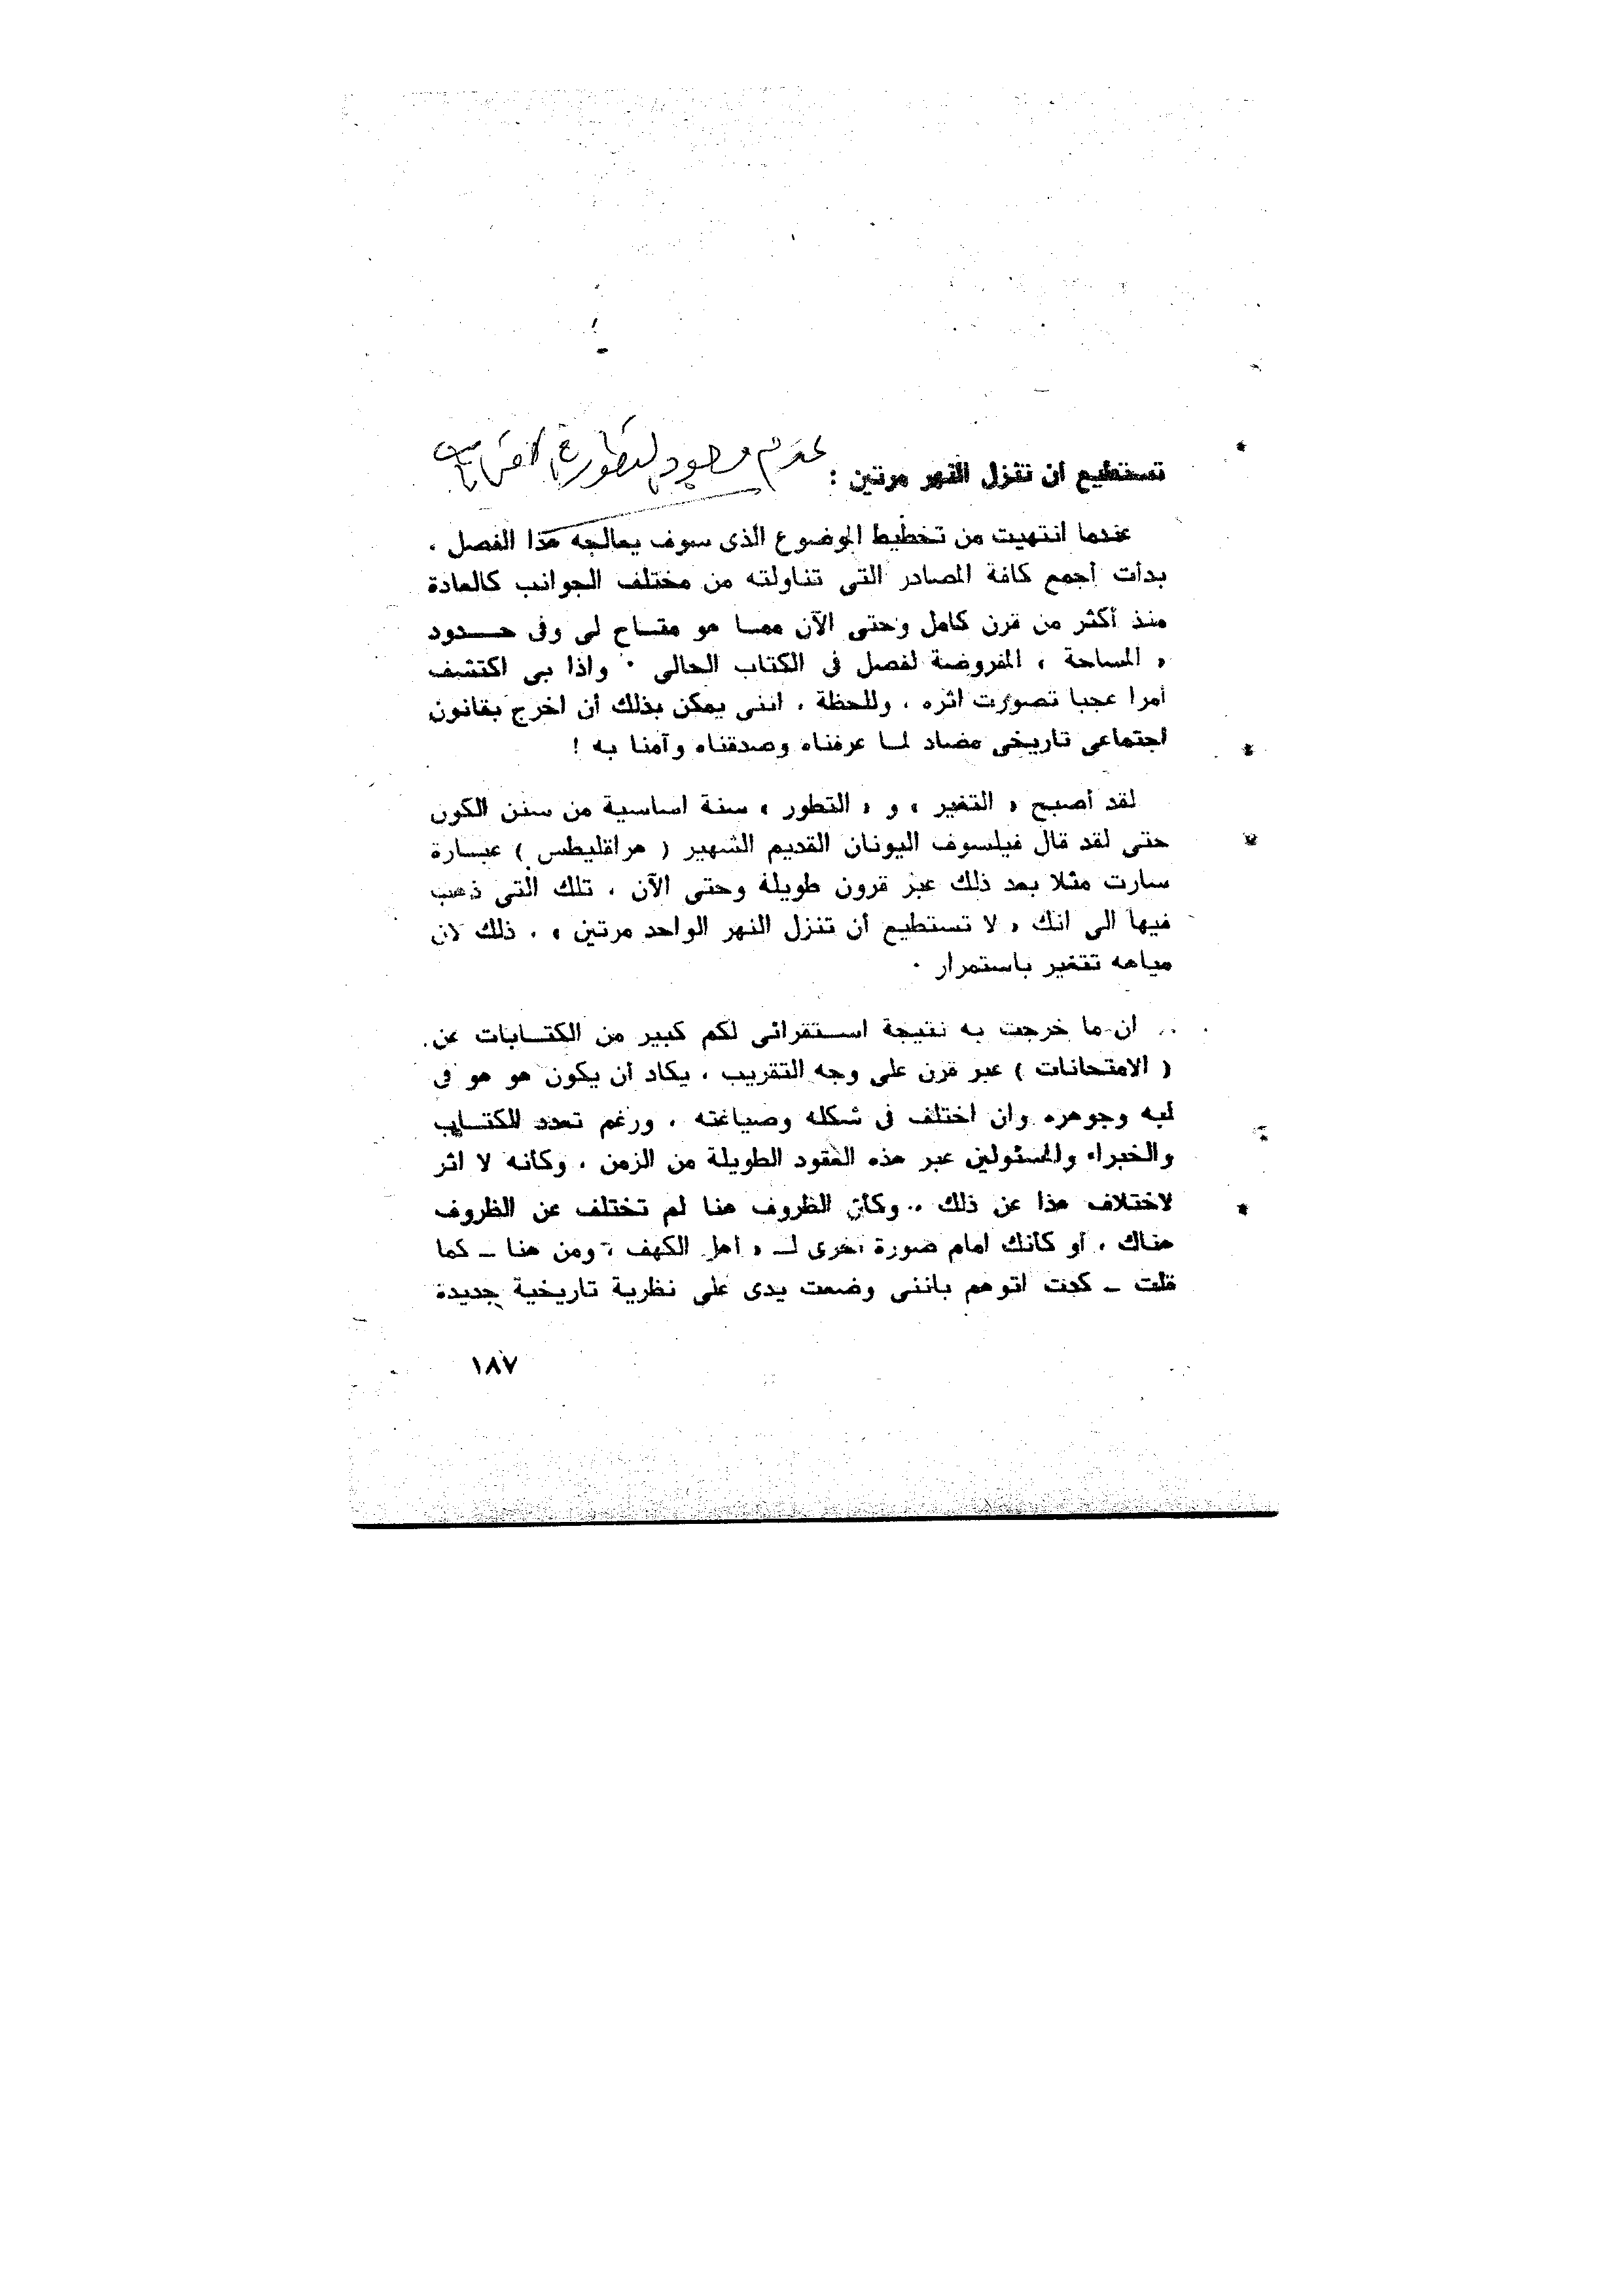 تستطيع ان تنزل النهر مرتين :
عدم وجود تطور فى
عندما انتهيت من تخطيط الموضوع الذى سوف يعالجه هذا الفصل ،
بدأت أجمع كافة المصادر التى تناولته من مختلف الجوانب كالعادة
منذ أكثر من قرن كامل وحتى الآن ممـا هو متـاح لى وفى حــدود
« المساحة » المفروضة لفصل فى الكتاب الحالى ٠ واذا بى اكتشف
أمرا عجبا تصورت اثره ، وللحظة ، اننى يمكن بذلك أن اخرج بقانون
اجتماعى تاريخى مضاد لمـا عرفناه وصدقناه وآمنا به !
لقد أصبح « التغير » و « التطور » سنة اساسية من سنن الكون
حتى لقد قال فيلسوف اليونان القديم الشهير ( هراقليطس ) عبـارة
سارت مثلا بعد ذلك عبر قرون طويلة وحتى الآن ، تلك التى ذهب
فيها الى انك « لا تستطيع أن تنزل النهر الواحد مرتين » ، ذلك لان
مياهه تتغير باستمرار ٠
ان ما خرجت به نتيجة اسـتقرائى لكم كبير من الكتـابات عن
( الامتحانات ) عبر قرن على وجه التقريب ، يكاد أن يكون هو هو فى
لبه وجوهره وان اختلف فى شكله وصياغته ، ورغم تعدد الكتـاب
والخبراء والمسئولين عبر هذه العقود الطويلة من الزمن ، وكأنه لا اثر
لاختلاف هذا عن ذلك ٠٠ وكأن الظروف هنا لم تختلف عن الظروف
هناك ، أو كأنك امام صورة أخرى لـ « أهل الكهف » ومن هنا ـ كما
قلت ـ كدت اتوهم باننى وضعت يدى على نظرية تاريخية جديدة
١٨٧